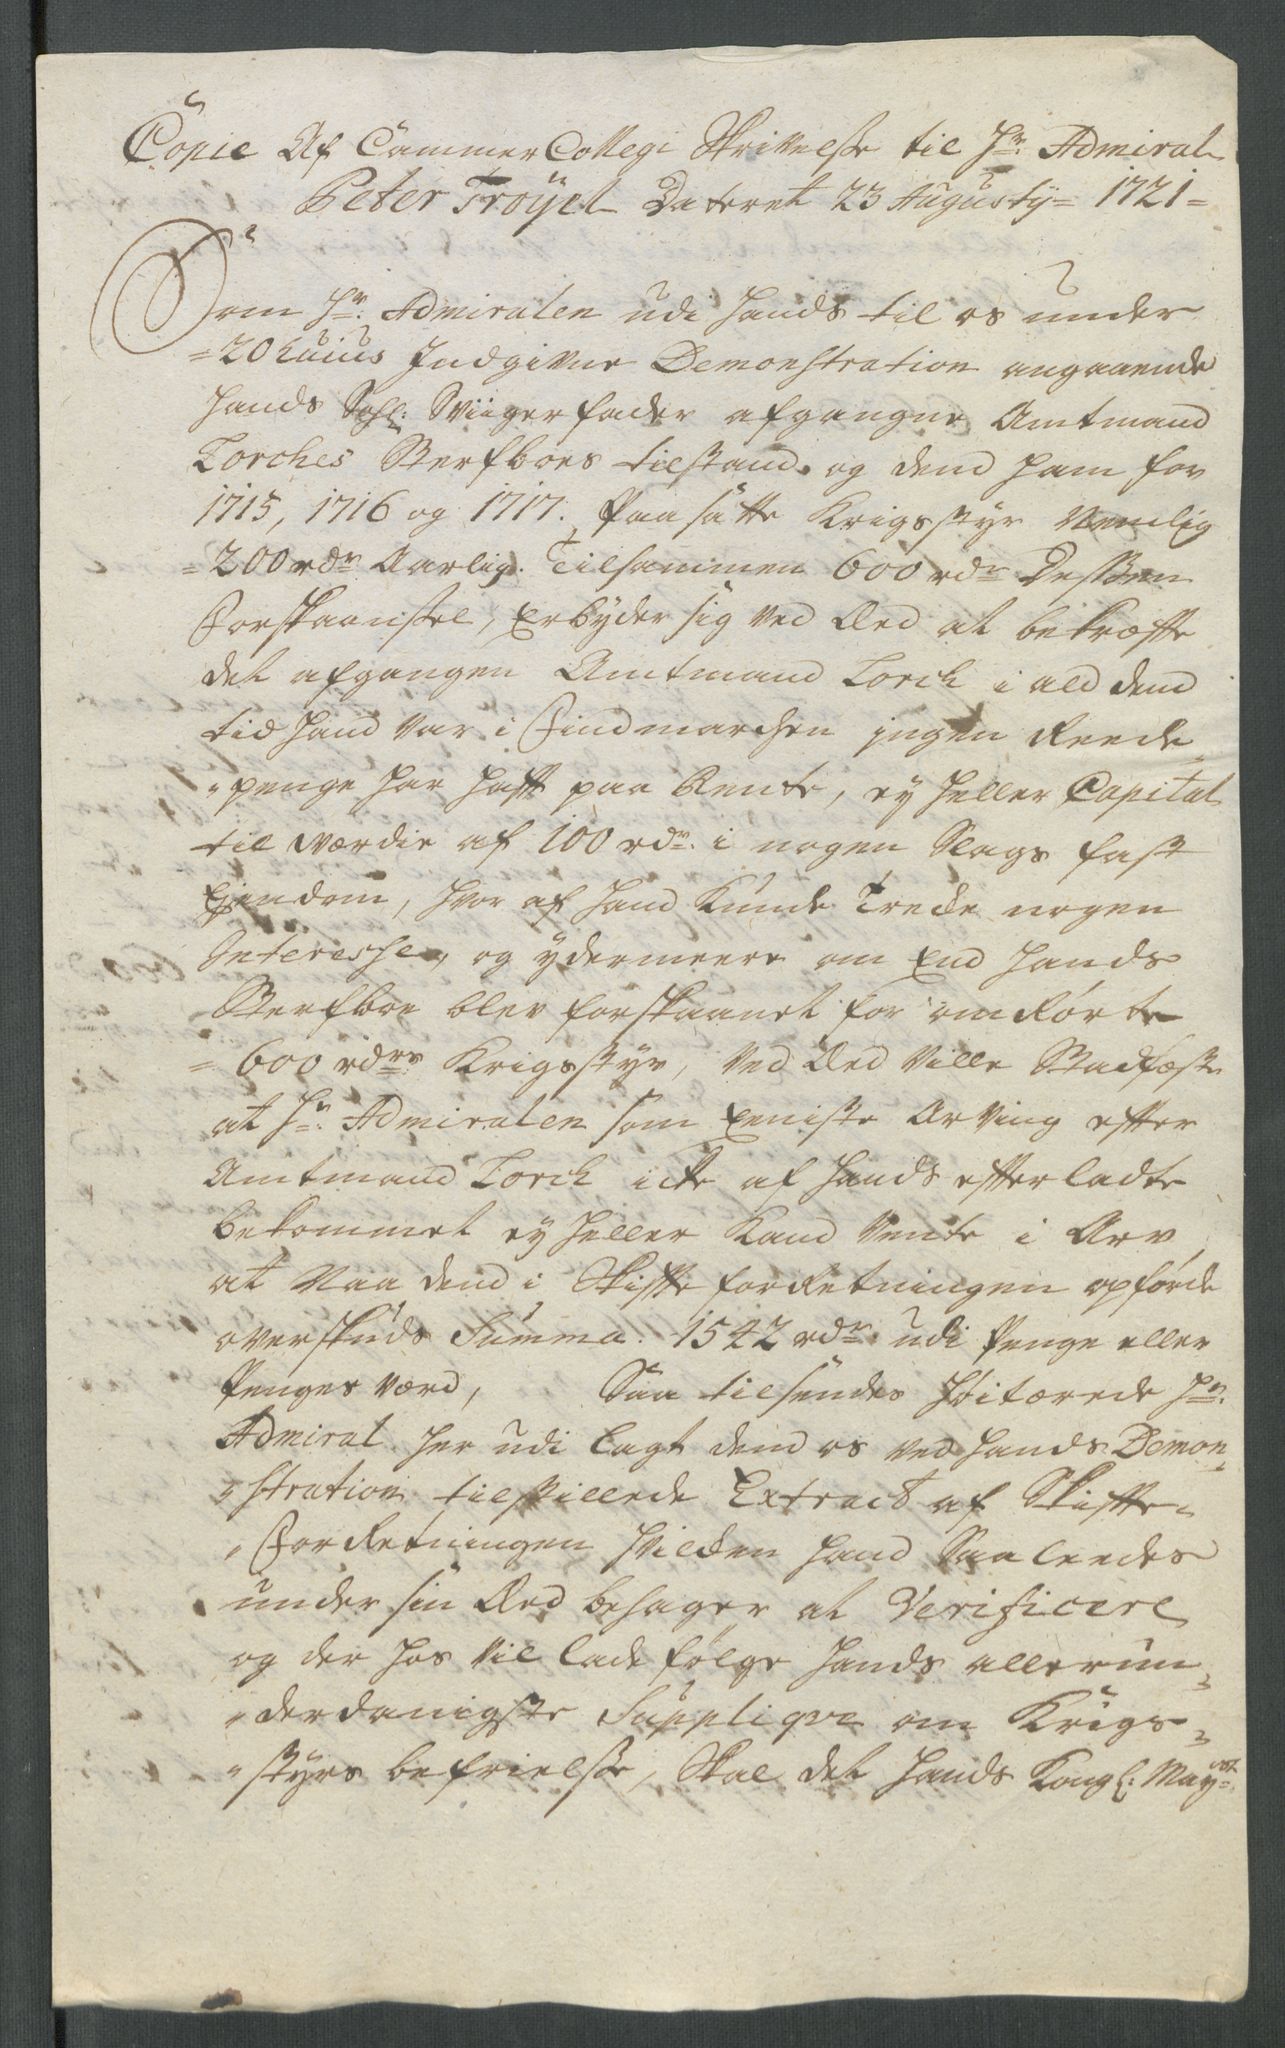 Copie Af Cammer Collegi Skrivelse til Hr: Admiral
Peter Tröyel Dateret 23 Augustij 1721
Som Hr: Admiralen udi hands til os under
20 huius Indgivne Demonstration angaaende
hands Sahl: Sviigerfader afgangne Amtmand
Lorches Sterfboes tilstand, og dend ham for
1715, 1716 og 1717. Paasatte Krigsstyr Nemlig
200 rdr Aarlig. Tilsammen 600 rdr Dessen
Forskaansel, Erbyder sig ved Eed at bekræffte
det afgangen Amtmand Lorch i ald dend
tid hand var i Findmarchen ingen Reede
penge har hafft paa Rente, ey heller Capital
til værdie af 100 rdr: i nogen Slags fast
Ejendom, hvor af hand kunde Trecke nogen
Interesse, og ydermeere om End hands
Sterfboe blev forskaanet for omrørte
600 rdrs Krigsstyr, ved Eed ville Stadfæste
at Hr: Admiralen som Eeniste Arving effter
Amtmand Lorck icke af hands efterladte
bekommet ey heller kand vente i Arv
at Naa dend i Skiffte forRetningen opförde
overskuds Summa. 1542 rdr udi Penge eller
Penges værd, Saa tilsendes Höitærede Hr:
Admiral her udi lagt dend os ved hands Demon
stration tilstillede Extract af Skiffte
ForRetningen hvilcken hand Saaleedes
under sin Eed behager at Verificere
og der hos vil lade følge hands allerun
derdanigste Supplique om Krigs
styrs befrielse, Skal det hands Kongl: Mayst: